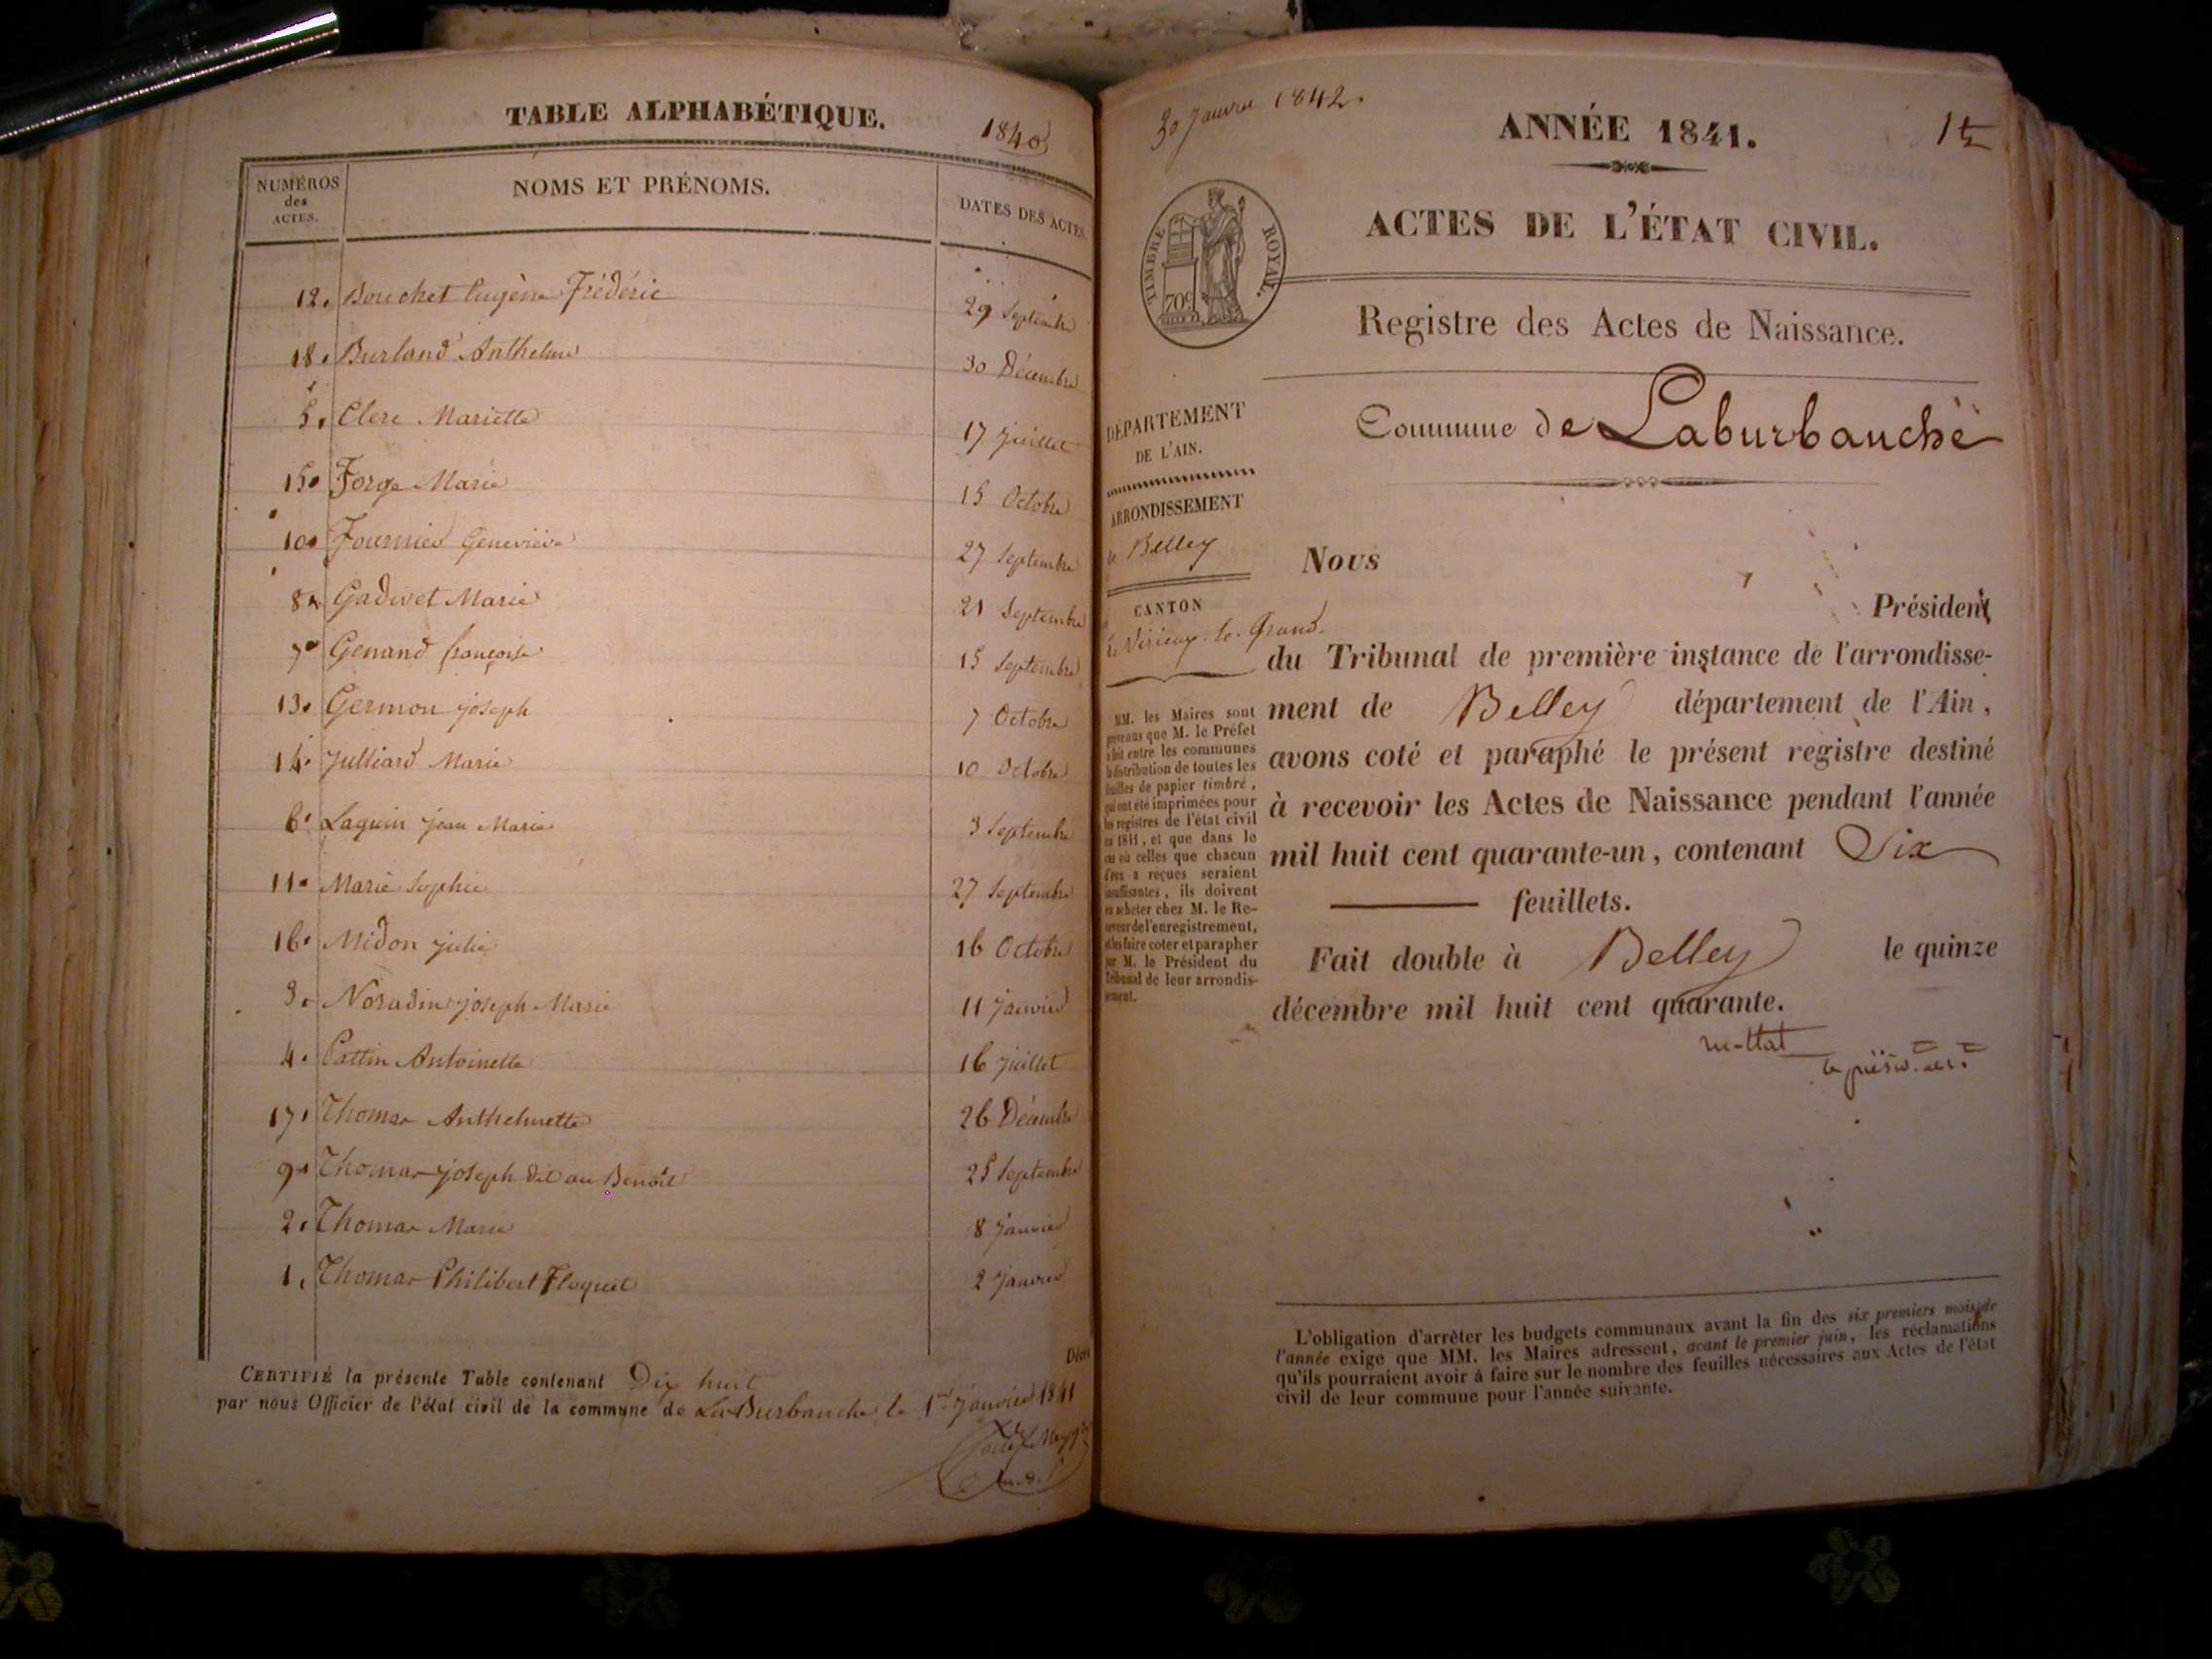 TABLE ALPHABÉTIQUE.
1840
NUMÉROS
des
ACTES.
NOMS ET PRÉNOMS.
DATES DES ACTES.
12. Bouchet Eugène Frédéric 29 Septembre
18. Burland Anthelme 30 Décembre
5. Clerc Mariette 17 Juillet
15. Forge Marie 15 Octobre
10. Fournier Geneviève 27 Septembre
8. Gadivet Marie 21 Septembre
7. Genand françoise 15 Septembre
13. Germon joseph 7 Octobre
14. Julliard Marie 10 Octobre
6. Laguin jean Marie 3 Septembre
11. Marie Sophie 27 Septembre
16. Midon julie 16 Octobre
3. Noradin joseph Marie 11 Janvier
4. Pattin Antoinette 16 Juillet
17. Thomas Anthelmette 26 Décembre
9. Thomas joseph dit au Benoît 25 Septembre
2. Thomas Marie 8 Janvier
1. Thomas Philibert Floquet 2 Janvier
CERTIFIÉ la présente Table contenant Dix huit
par nous Officier de l'état civil de la commune de La Burbanche le 1er janvier 1841
30 Janvier 1842.
ANNÉE 1841.
ACTES DE L'ÉTAT CIVIL.
TIMBRE ROYAL.
70c
Registre des Actes de Naissance.
Commune de Laburbanche
DÉPARTEMENT
DE L'AIN.
ARRONDISSEMENT
de Belley
CANTON
de Virieux-le-Grand.
MM. les Maires sont
prévenus que M. le Préfet
a fait entre les communes
la distribution de toutes les
feuilles de papier timbré,
qui ont été imprimées pour
les registres de l'état civil
en 1841, et que dans le
cas où celles que chacun
d'eux a reçues seraient
insuffisantes, ils doivent
en acheter chez M. le Re-
ceveur de l'enregistrement,
et les faire coter et parapher
par M. le Président du
Tribunal de leur arrondis-
sement.
Nous
Président
du Tribunal de première instance de l'arrondisse-
ment de Belley département de l'Ain,
avons coté et paraphé le présent registre destiné
à recevoir les Actes de Naissance pendant l'année
mil huit cent quarante-un, contenant Six
feuillets.
Fait double à Belley le quinze
décembre mil huit cent quarante.
L'obligation d'arrêter les budgets communaux avant la fin des six premiers mois de
l'année exige que MM. les Maires adressent, avant le premier juin, les réclamations
qu'ils pourraient avoir à faire sur le nombre des feuilles nécessaires aux Actes de l'état
civil de leur commune pour l'année suivante.